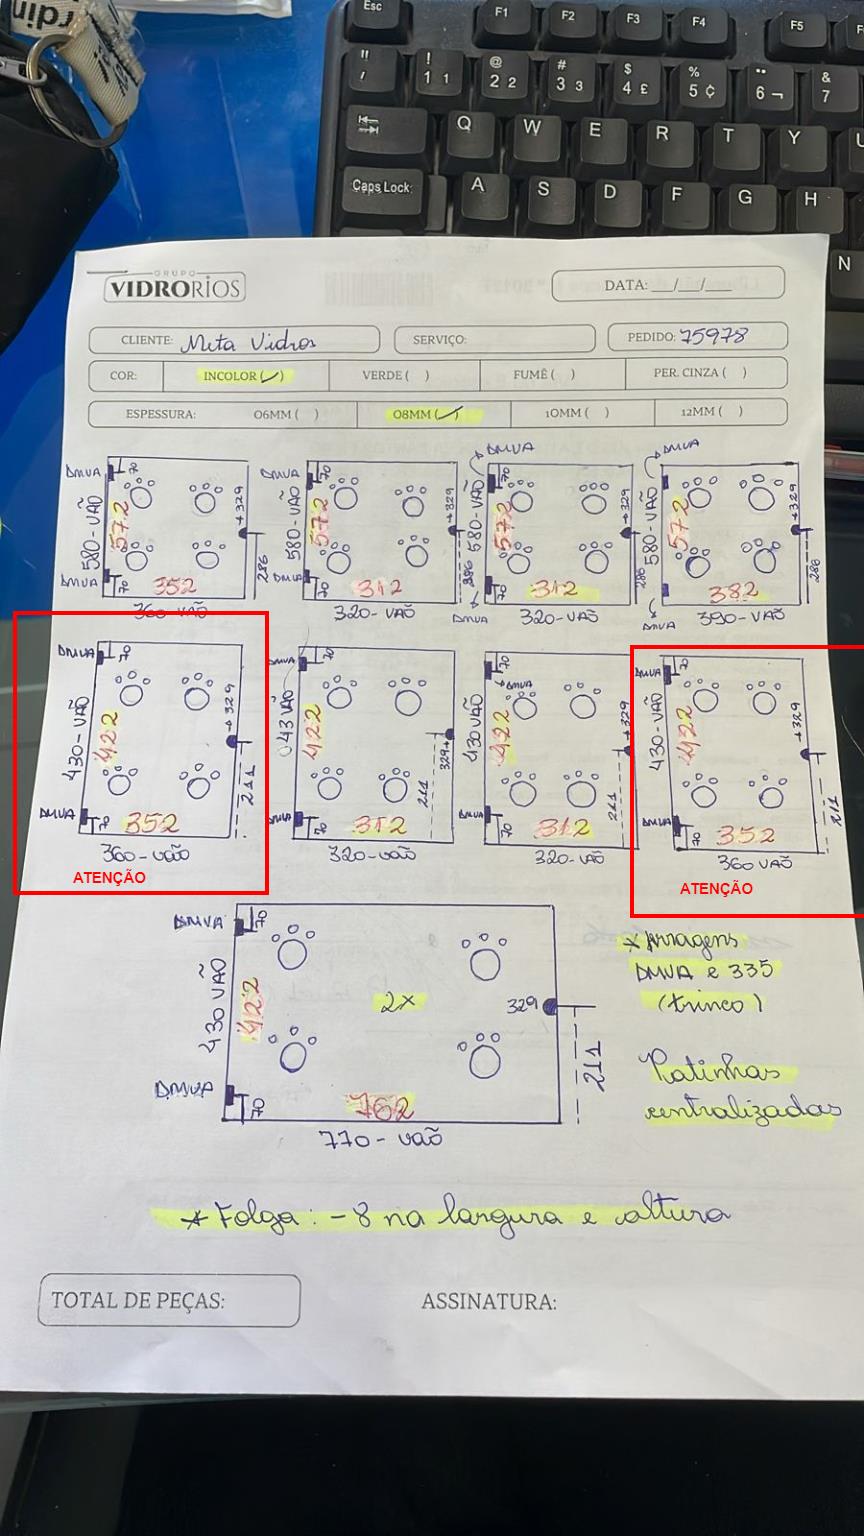 rdin
Esc F1 F2 F3 F4 F5
" / ! 1 1 @ 2 2 # 3 3 $ 4 £ % 5 ¢ ¨ 6 ¬ & 7
Q W E R T Y
Caps Lock A S D F G H
N
GRUPO
VIDRORIOS
DATA: __/__/__
CLIENTE: Meta Vidros SERVIÇO: PEDIDO: 75978
COR: INCOLOR (✓) VERDE ( ) FUMÊ ( ) PER. CINZA ( )
ESPESSURA: 06MM ( ) 08MM (✓) 10MM ( ) 12MM ( )
DMVA 70 580-VÃO 572 DMVA 70 352 329 286 360-VÃO
DMVA 70 580-VÃO 572 DMVA 70 312 329 286 320-VÃO
DMVA 70 580-VÃO 572 DMVA 70 312 329 286 320-VÃO
DMVA 580-VÃO 572 DMVA 382 329 286 390-VÃO
DMVA 70 430-VÃO 422 DMVA 70 352 329 211 360-VÃO
ATENÇÃO
DMVA 70 043 VÃO 422 DMVA 70 312 329 211 320-VÃO
70 DMVA 430 VÃO 422 DMVA 70 312 329 211 320-VÃO
DMVA 70 430-VÃO 422 DMVA 70 352 329 211 360 VÃO
ATENÇÃO
DMVA 70 430 VÃO 422 2x 329 211 DMVA 70 762
770-VÃO
* ferragens
DMVA e 335
(trinco)
Patinhas
centralizadas
* Folga: -8 na largura e altura
TOTAL DE PEÇAS: ASSINATURA: